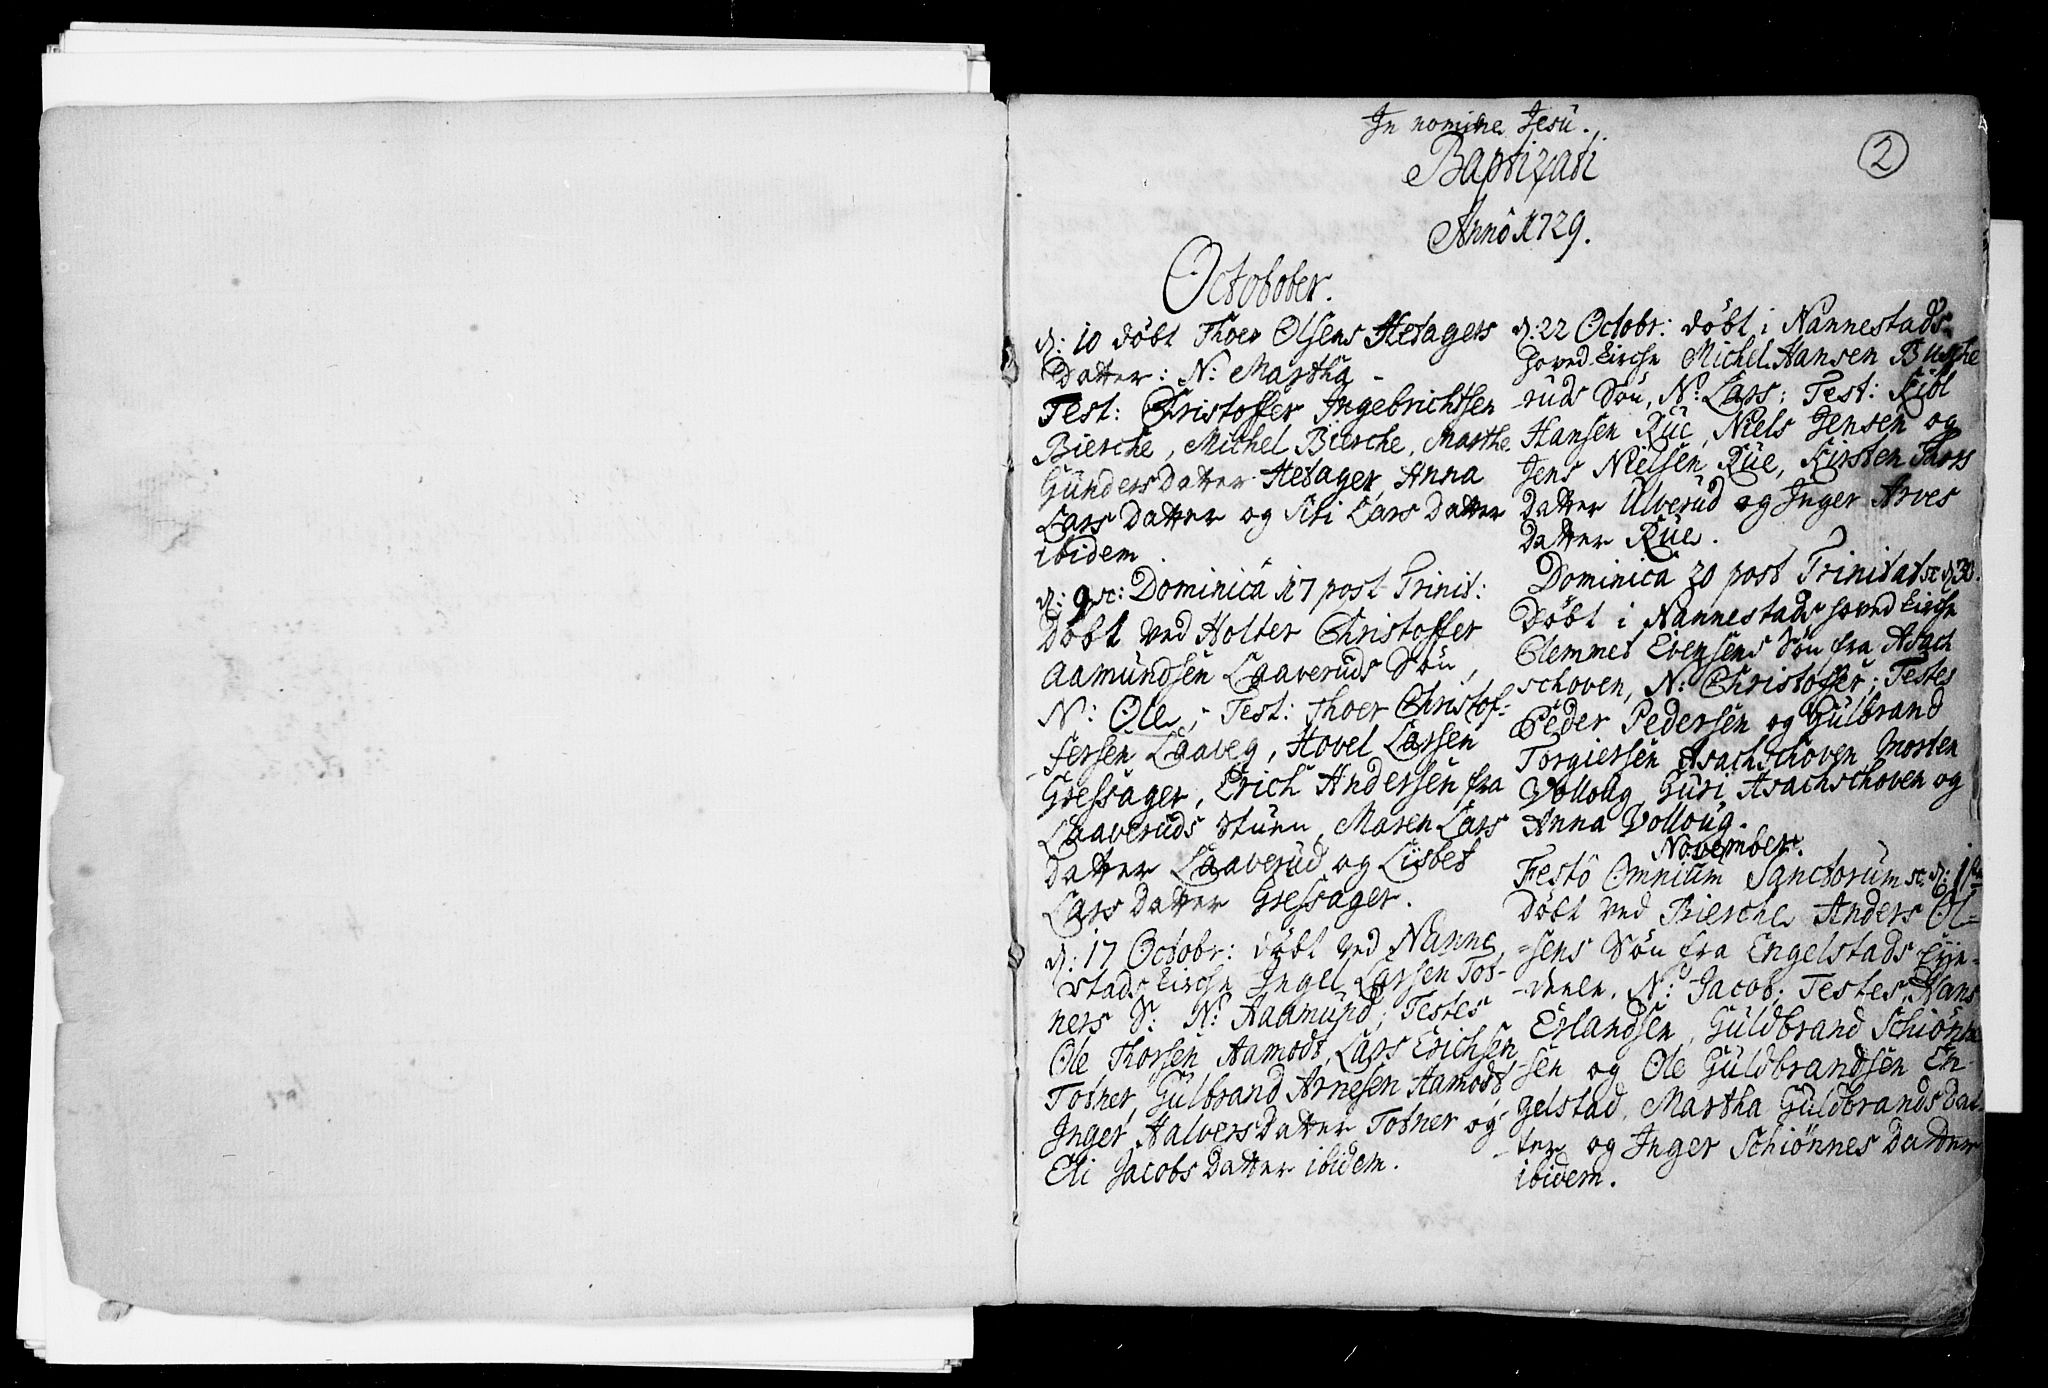 In nomine Jesu.
Baptizati
2
Anno 1729.
Octobober.
d: 10 döbt Thoer Olsens Hetagers
Datter: N: Martha
Test: Christoffer Ingebrichtsen
Bierche, Michel Bierche, Marthe
Gundersdatter Hetager, Anna
Larsdatter og Siri Larsdatter
ibidem.
d: 9 sc: Dominica 17 post Trinit:
Döbt ved Holter Christoffer
Aamundsen Laaveruds Sön,
N: Ole; Test: Thoer Christof-
fersen Laaveg, Hovel Larsen
Gressager, Erich Andersen fra
Laaveruds Stuen, Maren Lars
Datter Laaverud og Lisbet
Larsdatter Gressager.
d: 17 Octobr: döbt ved Nanne
stads Kirche Ingel Larsen Tot-
ners S: N: Aamund; Testes
Ole Thorsen Aamodt, Lars Erichsen
Totner, Gulbrand Arnesen Aamodt,
Inger Halversdatter Totner og
Eli Jacobsdatter ibidem.
d: 22 Octobr: döbt i Nannestads
Hovedkirche Michel Hansen Busche
ruds Sön, N: Lars; Test: Kibl
Hansen Rue, Niels Jensen og
Jens Nielsen Rue, Kirsten Lars
Datter Ulverud og Inger Arves
Datter Rue.
Dominica 20 post Trinitat sc d 30.
Döbt i Nannestads Hovedkirche
Clemmet Evensens Sön fra Asach
schoven, N: Christoffer; Testes
Peder Pedersen og Gulbrand
Torgiersen Asachschoven, Morten
Volloug, Guri Asachschoven og
Anna Volloug.
November.
Festo Omnium Sanctorum sc: d: 1
Döbt ved Bierche Anders Ol=
=sens Sön fra Engelstads Eye-
-deele, N: Jacob; Testes, Hans
Erlandsen, Guldbrand Schiönne
-sen og Ole Guldbrandsen En-
gelstad, Martha Guldbrandsdat-
-ter og Inger Schiönnesdatter
ibidem.